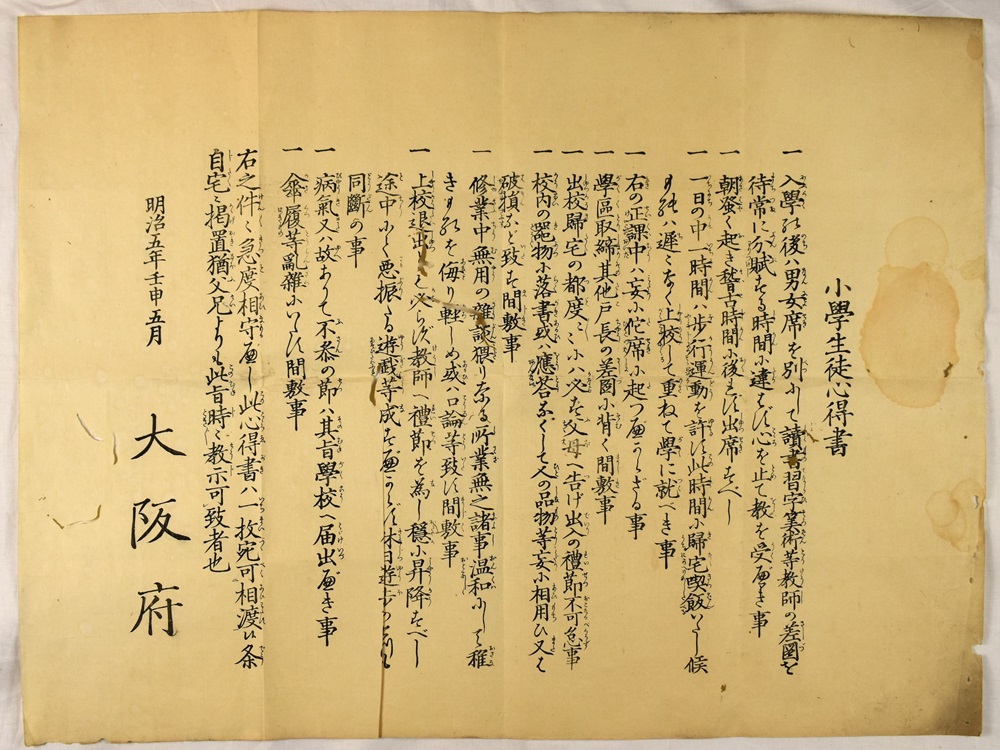 小學生徒心得書
一 入學の後ハ男女席を別にして讀書習字算術等教師の差圖を
待常に分賦する時間に違はず心を止て教を受べき事
一 朝蚤く起き稽古時間に後れず出席すべし
一 一日の中一時間ハ歩行運動を許す此時間に歸宅喫飯いたし候
ものハ遅々なく上校して重ねて學に就べき事
一 右の正課中ハ妄に佗席に起つべからざる事
一 學區取締其他戸長の差圖に背く間敷事
一 出校歸宅の都度々々にハ必ず父母へ告げ出入の禮節不可怠事
一 校内の器物に落書或ハ應答なくして人の品物等妄に相用ひ又は
破損など致す間敷事
一 修業中無用の雜談猥りなる所業無之諸事温和にして稚
きものを侮り輕しめ或ハ口論等致す間敷事
一 上校退出とも必らず教師へ禮節を為し穏に昇降すべし
途中にて悪振たる遊戯等成すべからず休日遊歩の節も
同斷の事
一 病氣又ハ故ありて不参の節ハ其旨學校へ届出べき事
一 傘履等亂雜にいたす間敷事
右之件々急度相守べし此心得書ハ一枚宛可相渡候条
自宅に掲置猶父兄よりも此旨時々教示可致者也
明治五年壬申五月
大阪府